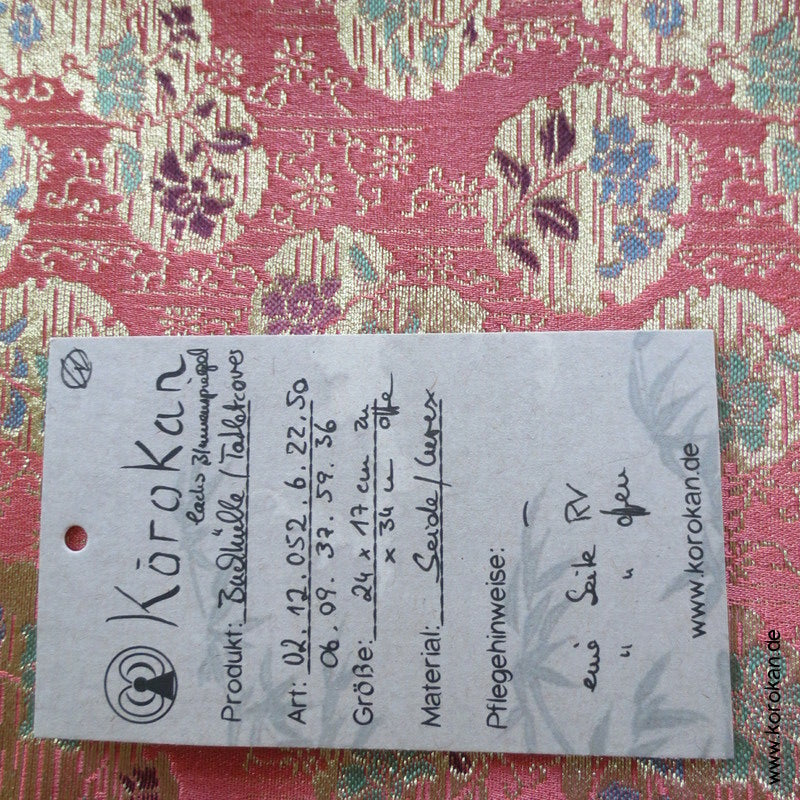 Kōrokan
Lachs Blumenspiegel
Produkt: Buchhülle / Tabletcover
Art: 02.12.052.6.22.50
06.09.37.59.36
Größe: 24 x 17 cm zu
x 34 " offen
Material: Seide / Lurex
Pflegehinweise: —
eine Seite RV
" " offen
www.korokan.de
www.korokan.de